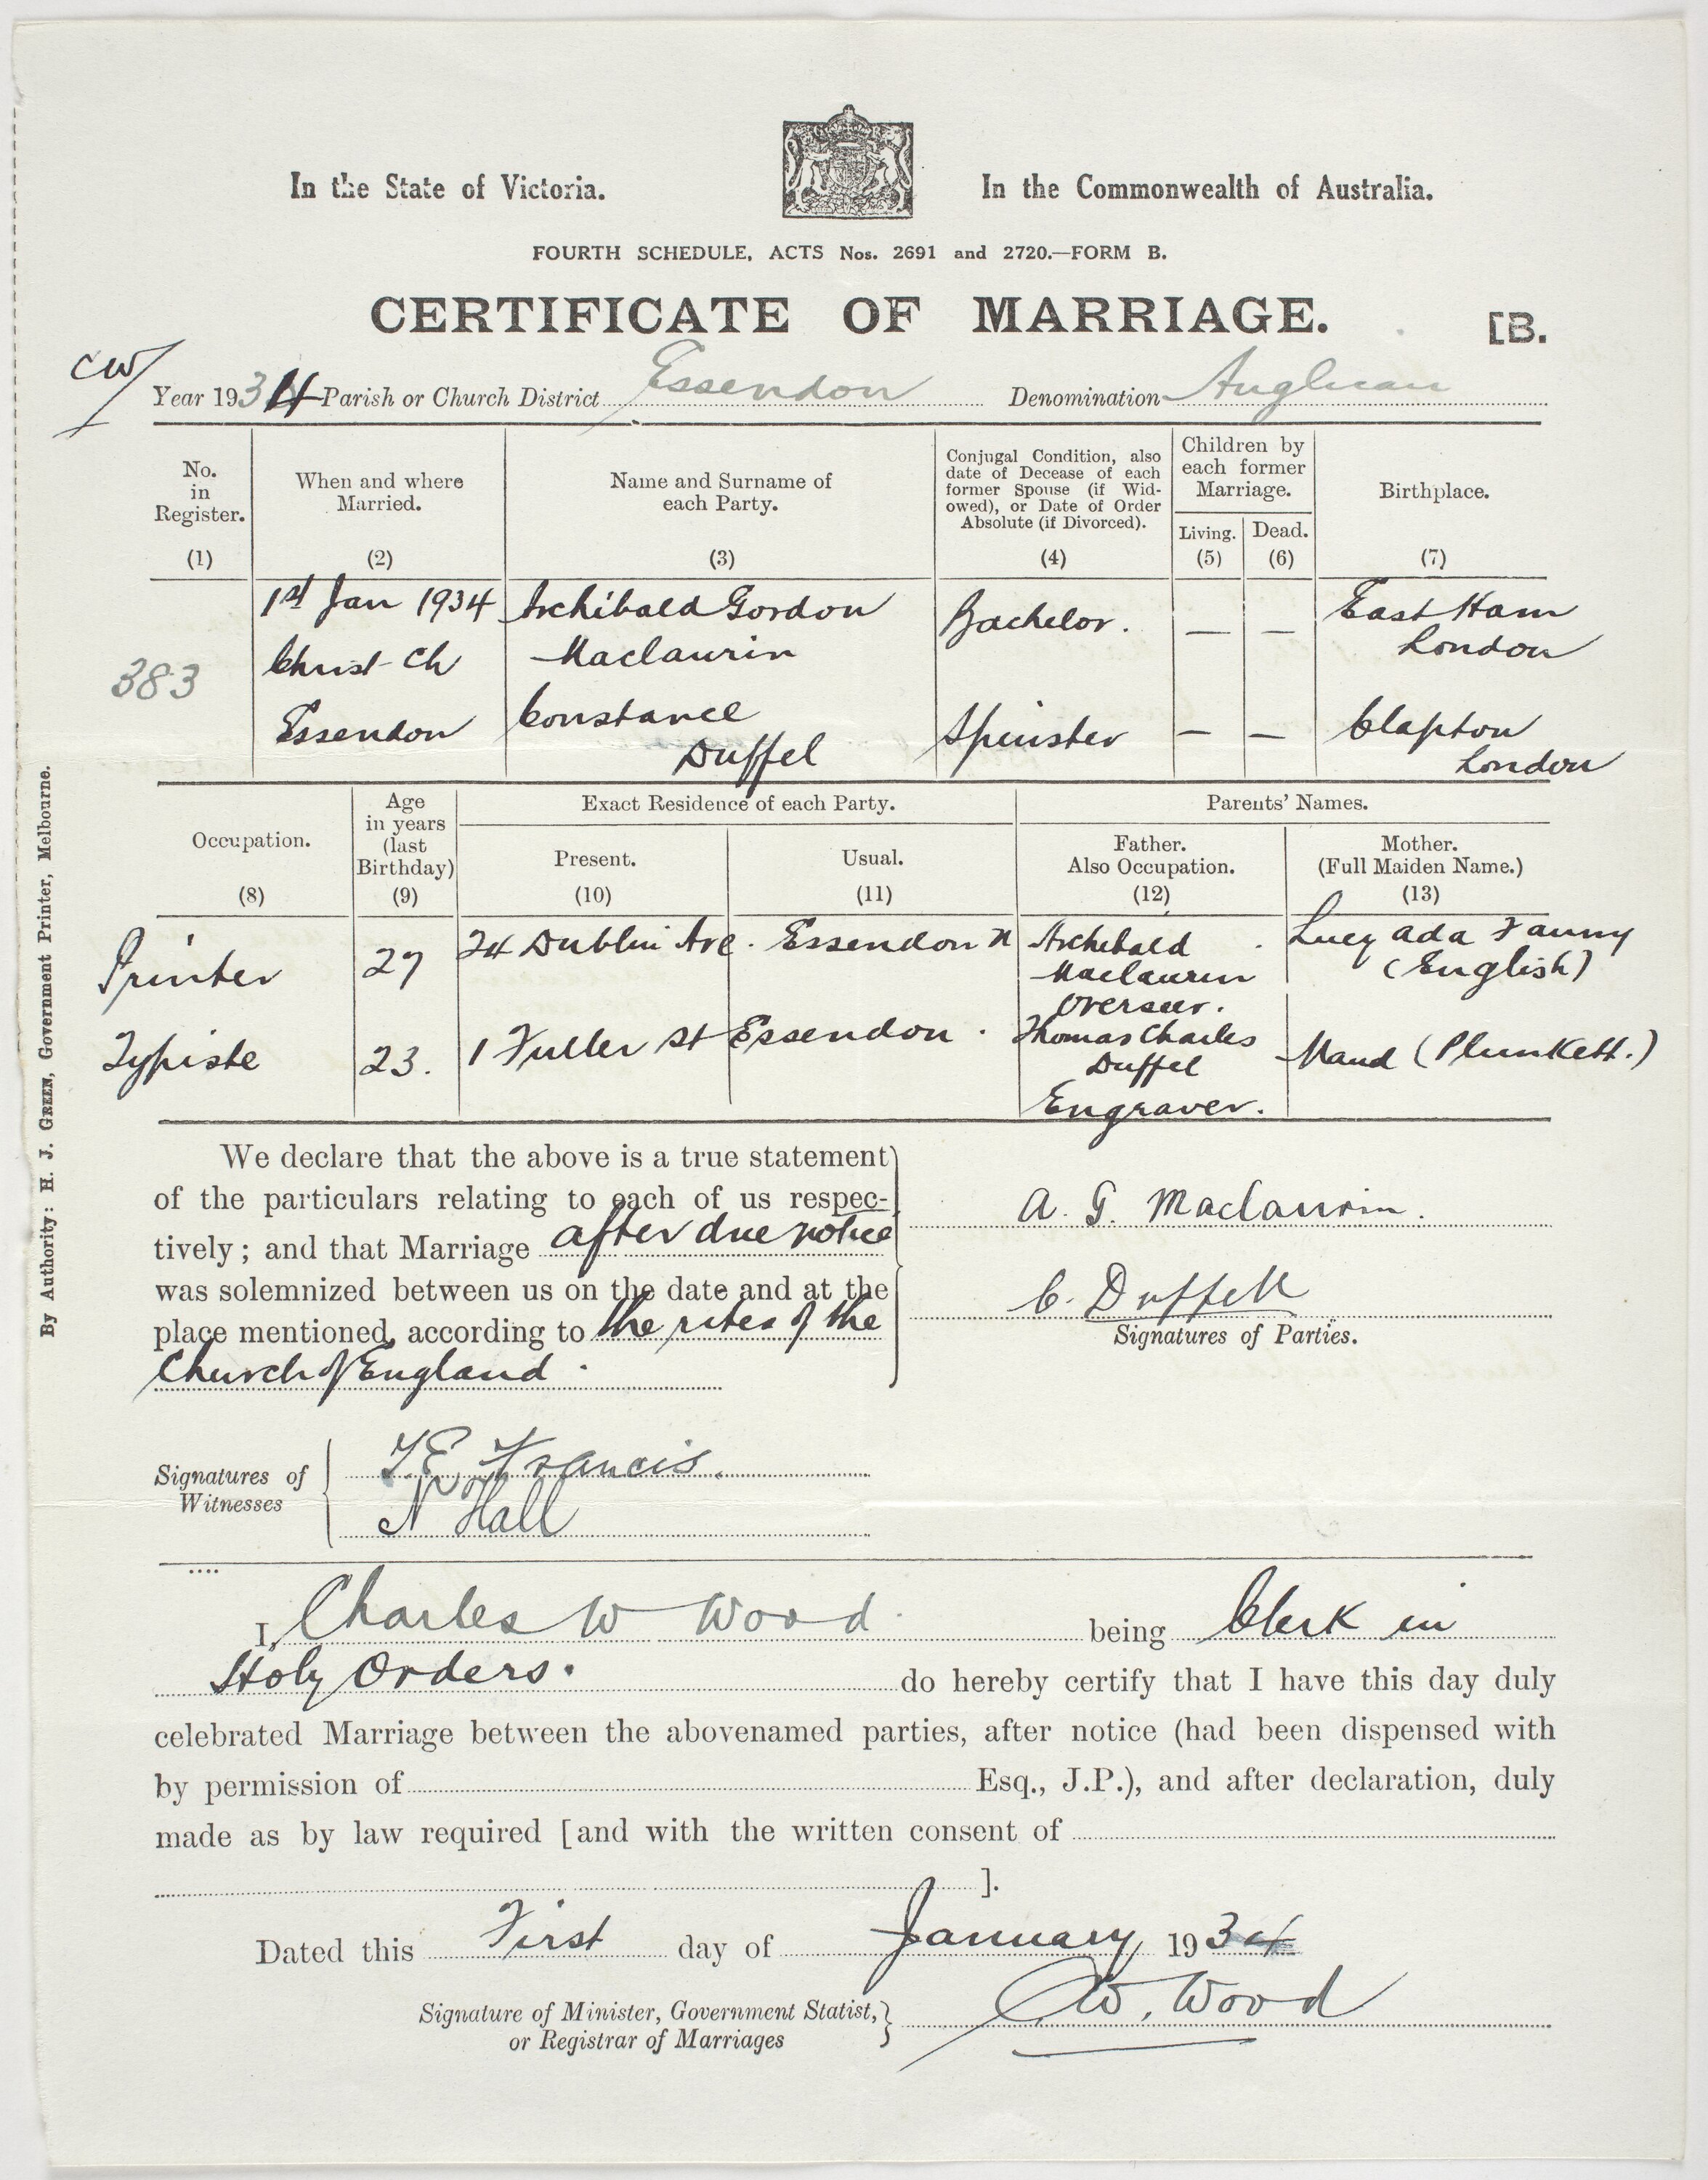 In the State of Victoria.
In the Commonwealth of Australia.
FOURTH SCHEDULE, ACTS Nos. 2691 and 2720.—FORM B.
CERTIFICATE OF MARRIAGE.
[B.
CW
Year 1934 Parish or Church District Essendon Denomination Anglican
No. in Register. (1)
When and where Married. (2)
Name and Surname of each Party. (3)
Conjugal Condition, also date of Decease of each former Spouse (if Widowed), or Date of Order Absolute (if Divorced). (4)
Children by each former Marriage.
Living. (5)
Dead. (6)
Birthplace. (7)
383
1st Jan 1934
Christ Ch
Essendon
Archibald Gordon
Maclaurin
Bachelor. — —
East Ham
London
Constance
Duffel
Spinster — —
Clapton
London
Occupation. (8)
Age in years (last Birthday) (9)
Exact Residence of each Party.
Present. (10)
Usual. (11)
Parents' Names.
Father. Also Occupation. (12)
Mother. (Full Maiden Name.) (13)
Printer 27 24 Dublin Ave. Essendon N
Archibald
Maclaurin
Overseer.
Lucy Ada Fanny
(English)
Typiste 23. 1 Fuller St Essendon.
Thomas Charles
Duffel
Engraver.
Maud (Plunkett.)
We declare that the above is a true statement
of the particulars relating to each of us respec-
tively; and that Marriage after due notice
was solemnized between us on the date and at the
place mentioned, according to the rites of the
Church of England.
A. G. Maclaurin.
C. Duffell
Signatures of Parties.
Signatures of Witnesses
T.E. Francis.
N Hall
I, Charles W Wood being Clerk in
Holy Orders. do hereby certify that I have this day duly
celebrated Marriage between the abovenamed parties, after notice (had been dispensed with
by permission of Esq., J.P.), and after declaration, duly
made as by law required [and with the written consent of
].
Dated this First day of January 1934
Signature of Minister, Government Statist,
or Registrar of Marriages
C.W. Wood
By Authority: H. J. GREEN, Government Printer, Melbourne.